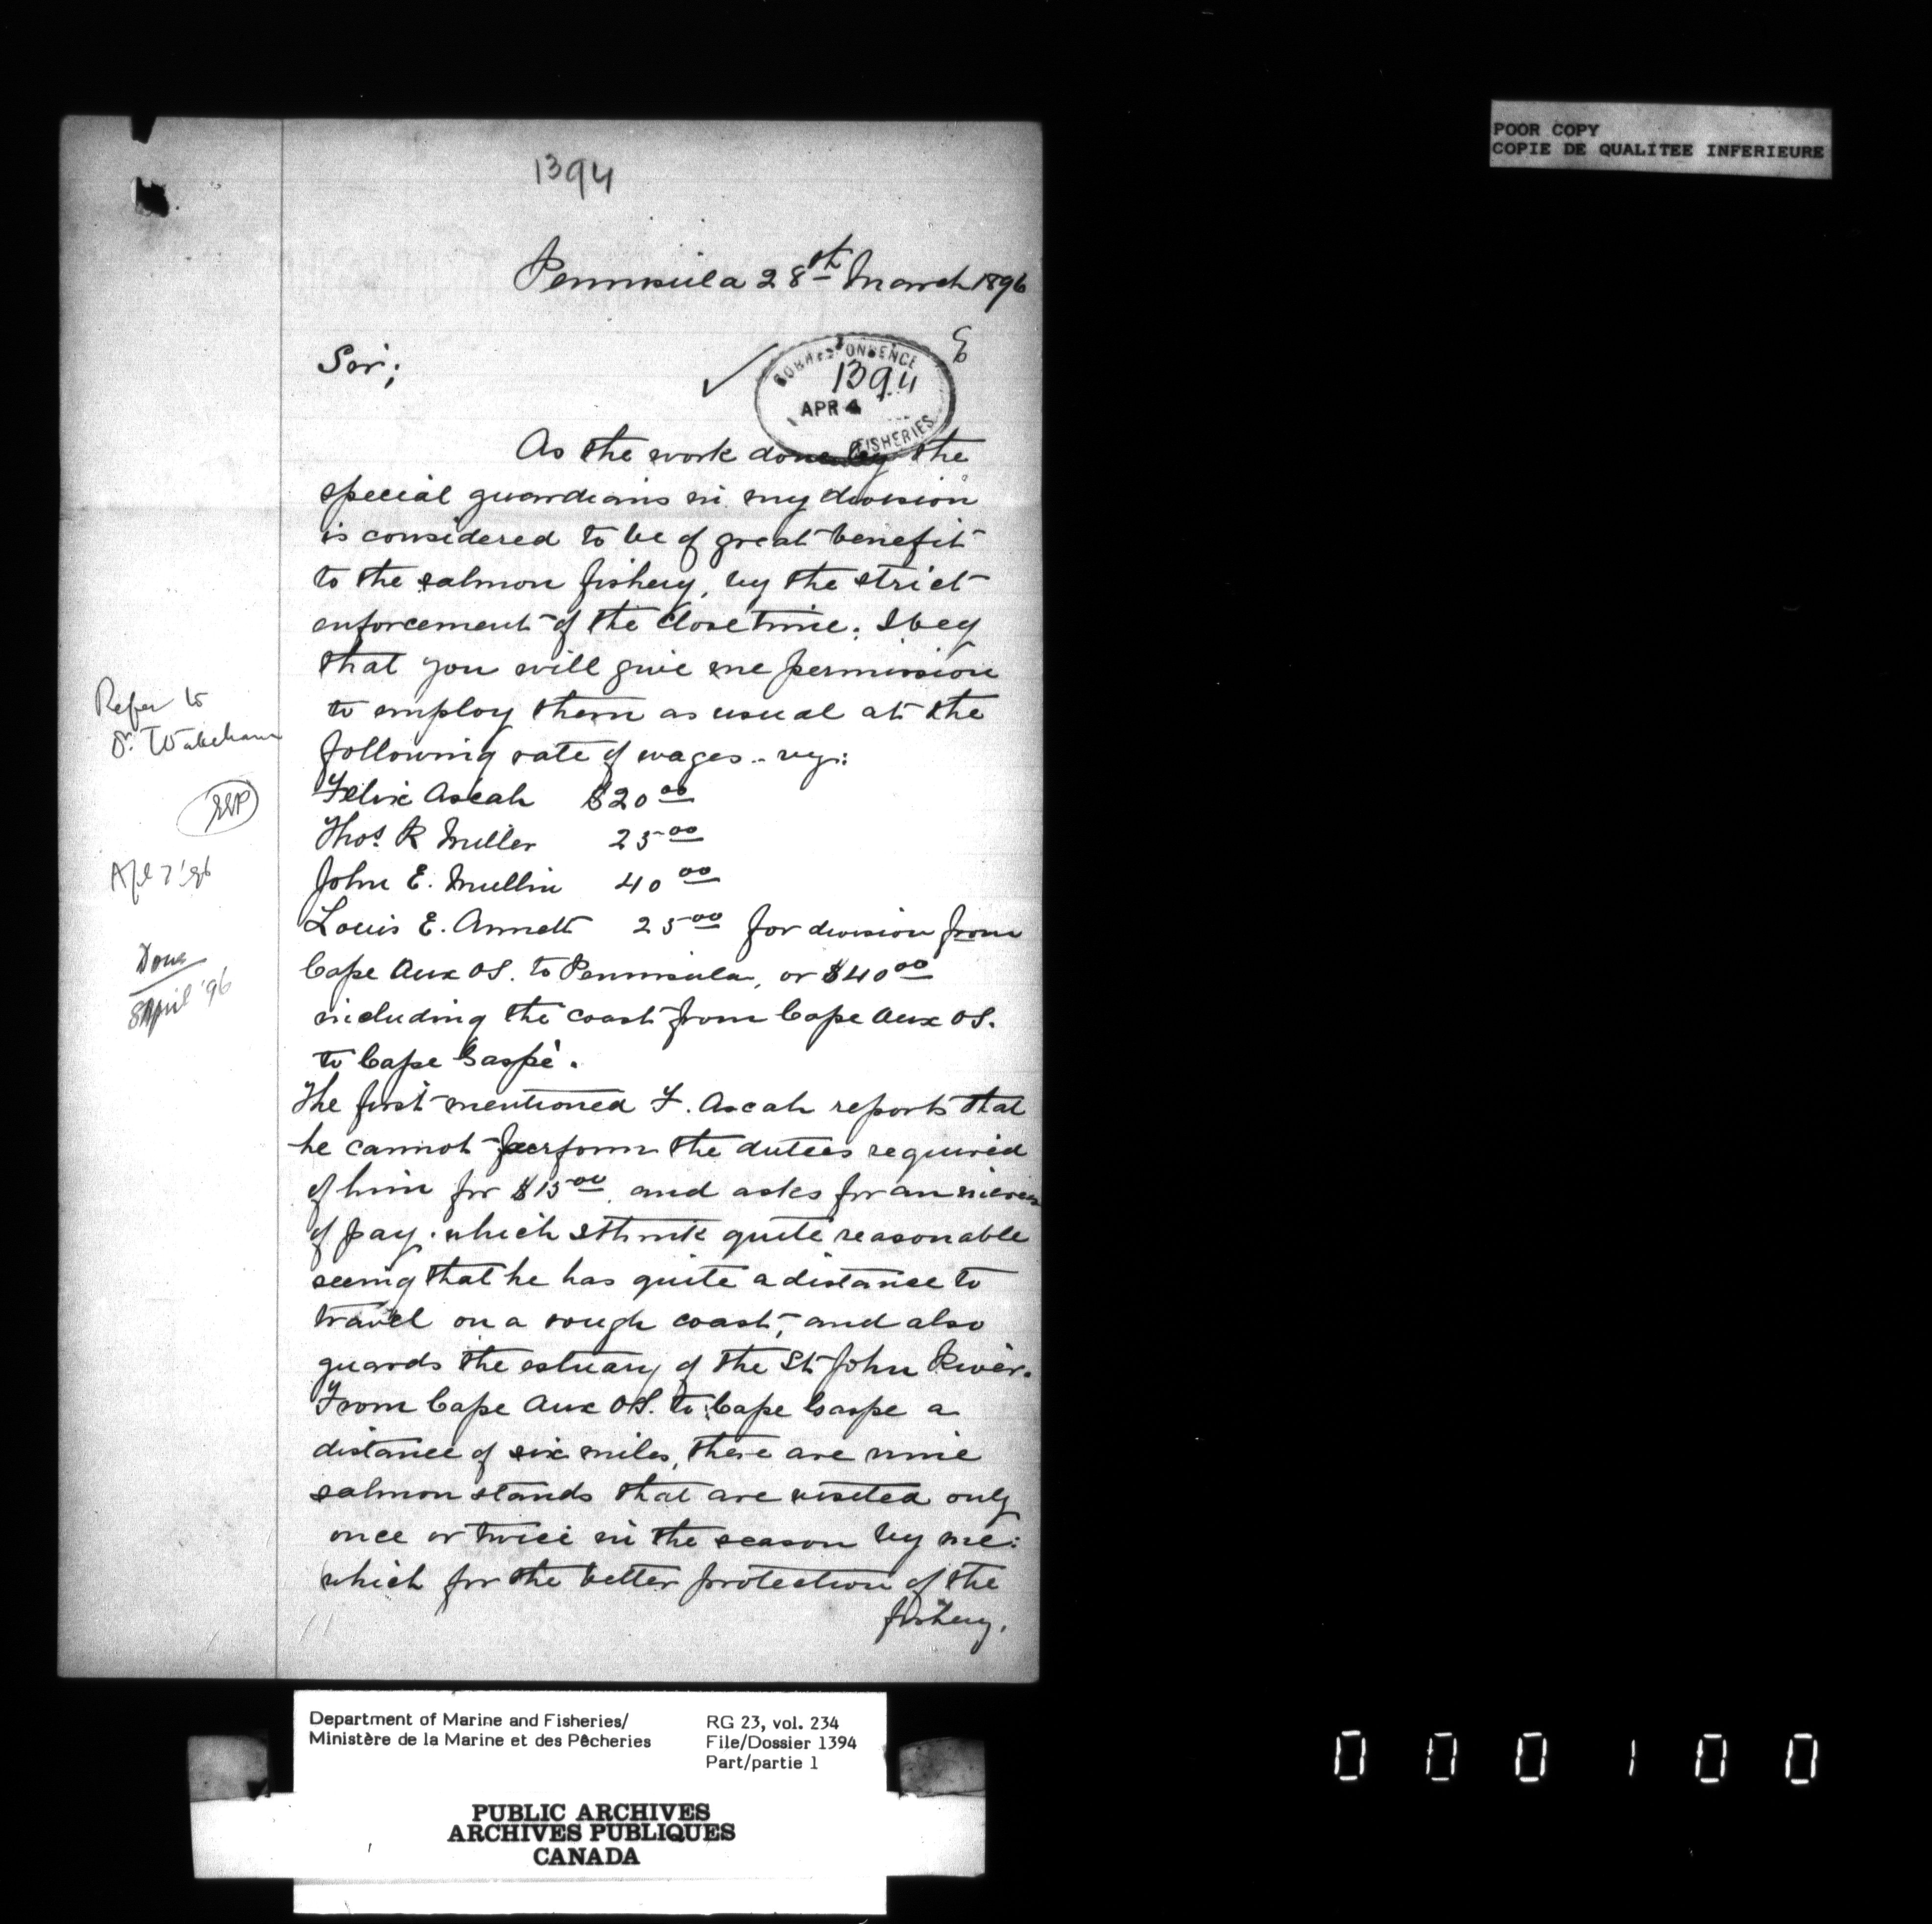 POOR COPY
COPIE DE QUALITEE INFERIEURE
1394
Peninsula 28th March 1896
Sir;
CORRESPONDENCE
1394
APR 4
FISHERIES
As the work done by the
special guardians in my division
is considered to be of great benefit
to the salmon fishery, by the strict
enforcement of the close time. I beg
that you will give me permission
to employ them as usual at the
following rate of wages .. viz:
Felix Ascah $20 00
Thos. R Miller 25 00
John E. Mullin 40 00
Louis E. Annett 25 00 for division from
Cape Aux OS. to Peninsula, or $40 00
including the coast from Cape Aux OS.
to Cape Gaspé.
The first mentioned F. Ascah reports that
he cannot perform the duties required
of him for $15 00 and asks for an increase
of pay. which I think quite reasonable
seeing that he has quite a distance to
travel on a rough coast, and also
guards the estuary of the St John River.
From Cape Aux OS. to Cape Gaspe a
distance of six miles, there are nine
salmon stands that are visited only
once or twice in the season by me:
which for the better protection of the
fishery,
Refer to
Dr. Wakeham
Apl 7 '96
Done
8 April '96
Department of Marine and Fisheries/
Ministère de la Marine et des Pêcheries
RG 23, vol. 234
File/Dossier 1394
Part/partie 1
PUBLIC ARCHIVES
ARCHIVES PUBLIQUES
CANADA
0 0 0 1 0 0